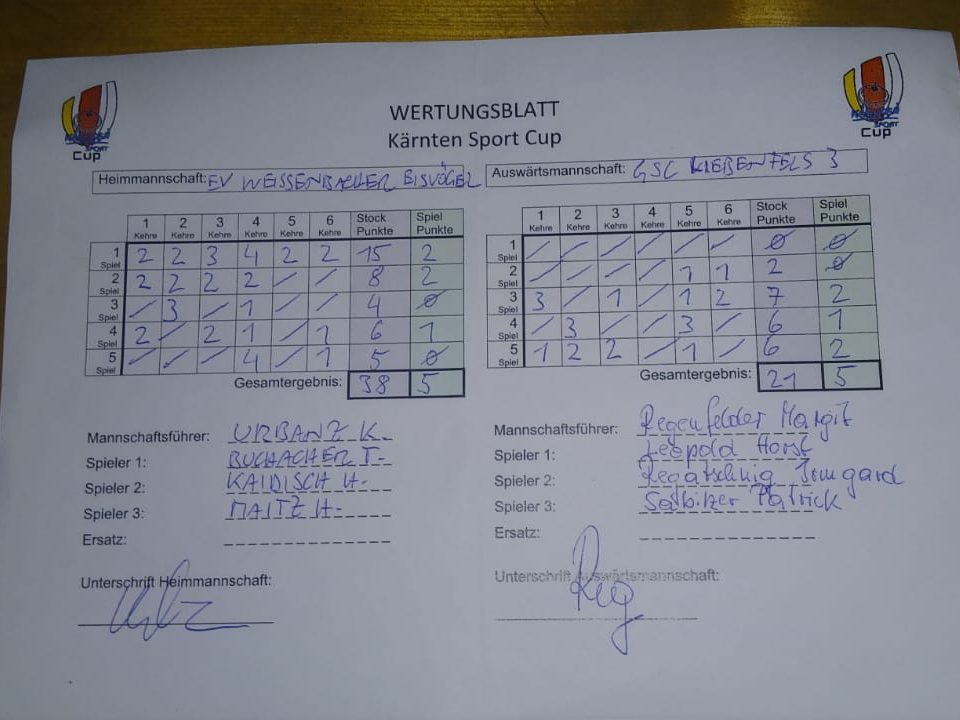 WERTUNGSBLATT
Kärnten Sport Cup
Cup
Cup
Heimmannschaft: EV WEISSENBACHER EISVÖGEL
Auswärtsmannschaft: GSC LIEBENFELS 3
1 Kehre 2 Kehre 3 Kehre 4 Kehre 5 Kehre 6 Kehre Stock Punkte Spiel Punkte
1 Spiel 2 2 3 4 2 2 15 2
2 Spiel 2 2 2 2 / / 8 2
3 Spiel / 3 / 1 / / 4 0
4 Spiel 2 / 2 1 / 1 6 1
5 Spiel / / / 4 / 1 5 0
Gesamtergebnis: 38 5
1 Kehre 2 Kehre 3 Kehre 4 Kehre 5 Kehre 6 Kehre Stock Punkte Spiel Punkte
1 Spiel / / / / / / 0 0
2 Spiel / / / / 1 1 2 0
3 Spiel 3 / 1 / 1 2 7 2
4 Spiel / 3 / / 3 / 6 1
5 Spiel 1 2 2 / 1 / 6 2
Gesamtergebnis: 21 5
Mannschaftsführer: URBANZ K.
Spieler 1: BUCHACHER T.
Spieler 2: KAIDISCH H.
Spieler 3: MAITZ H.
Ersatz:
Unterschrift Heimmannschaft:
Mannschaftsführer: Regenfelder Margit
Spieler 1: Leopold Horst
Spieler 2: Regatschnig Irmgard
Spieler 3: Patrick
Ersatz:
Unterschrift Auswärtsmannschaft:
Reg